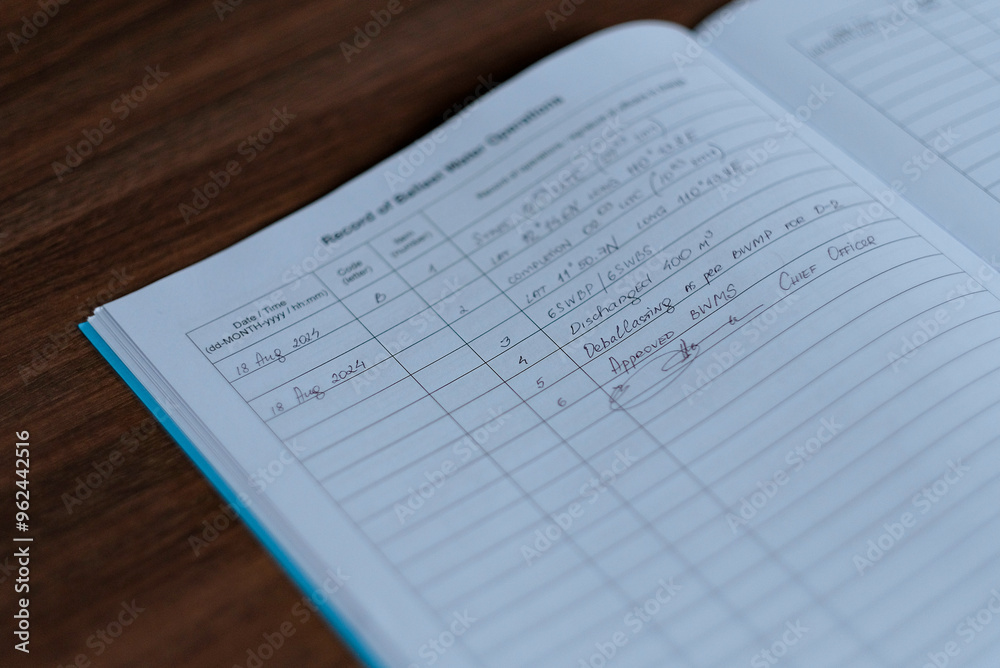 Record of Ballast Water Operations
Date / Time
(dd-MONTH-yyyy / hh:mm)
Code
(letter)
Item
(number)
Record of operations / signature of officers in charge
18 Aug 2024 B 1 START
LAT LONG
18 Aug 2024 2 COMPLETION
LAT 11° 50.7N LONG 110° 49.8E
3 6SWBP / 6SWBS
4 Discharged 400 m³
5 Deballasting as per BWMP for D-2
6 Approved BWMS
Chief Officer
Adobe Stock | #962442516
Adobe Stock